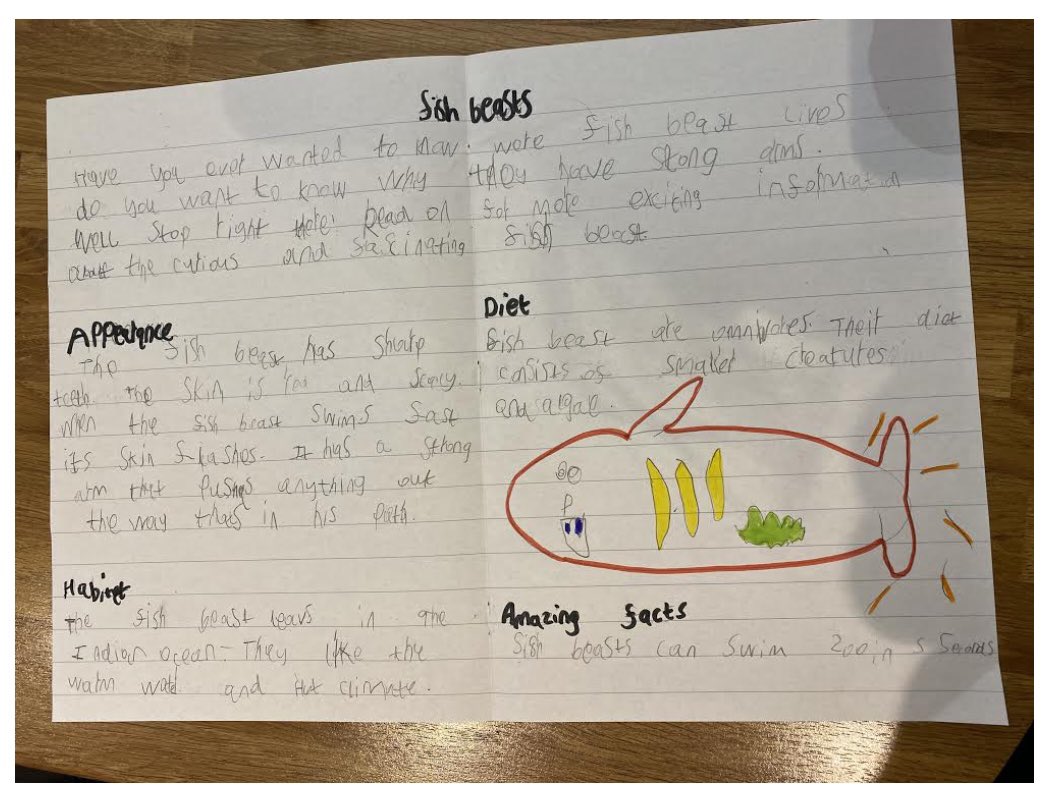 fish beasts
Have you ever wanted to know. were fish beast lives
do you want to know why they have stong arms.
Well stop right here! Read on for more exciting information
about the curious and facinating fish beast
Appearance
The fish beast has sharp
teeth. the skin is red and
when the fish beast swims fast
its skin flashes. It has a strong
arm that pushes anything out
the way thats in his path.
Diet
fish beast are omnivores. Their diet
consists of smaller creatures
and algae.
Habitet
the fish beast leavs in the
Indian ocean. They like the
warm and hot climate.
Amazing facts
fish beasts can swim 200 in 5 seconds